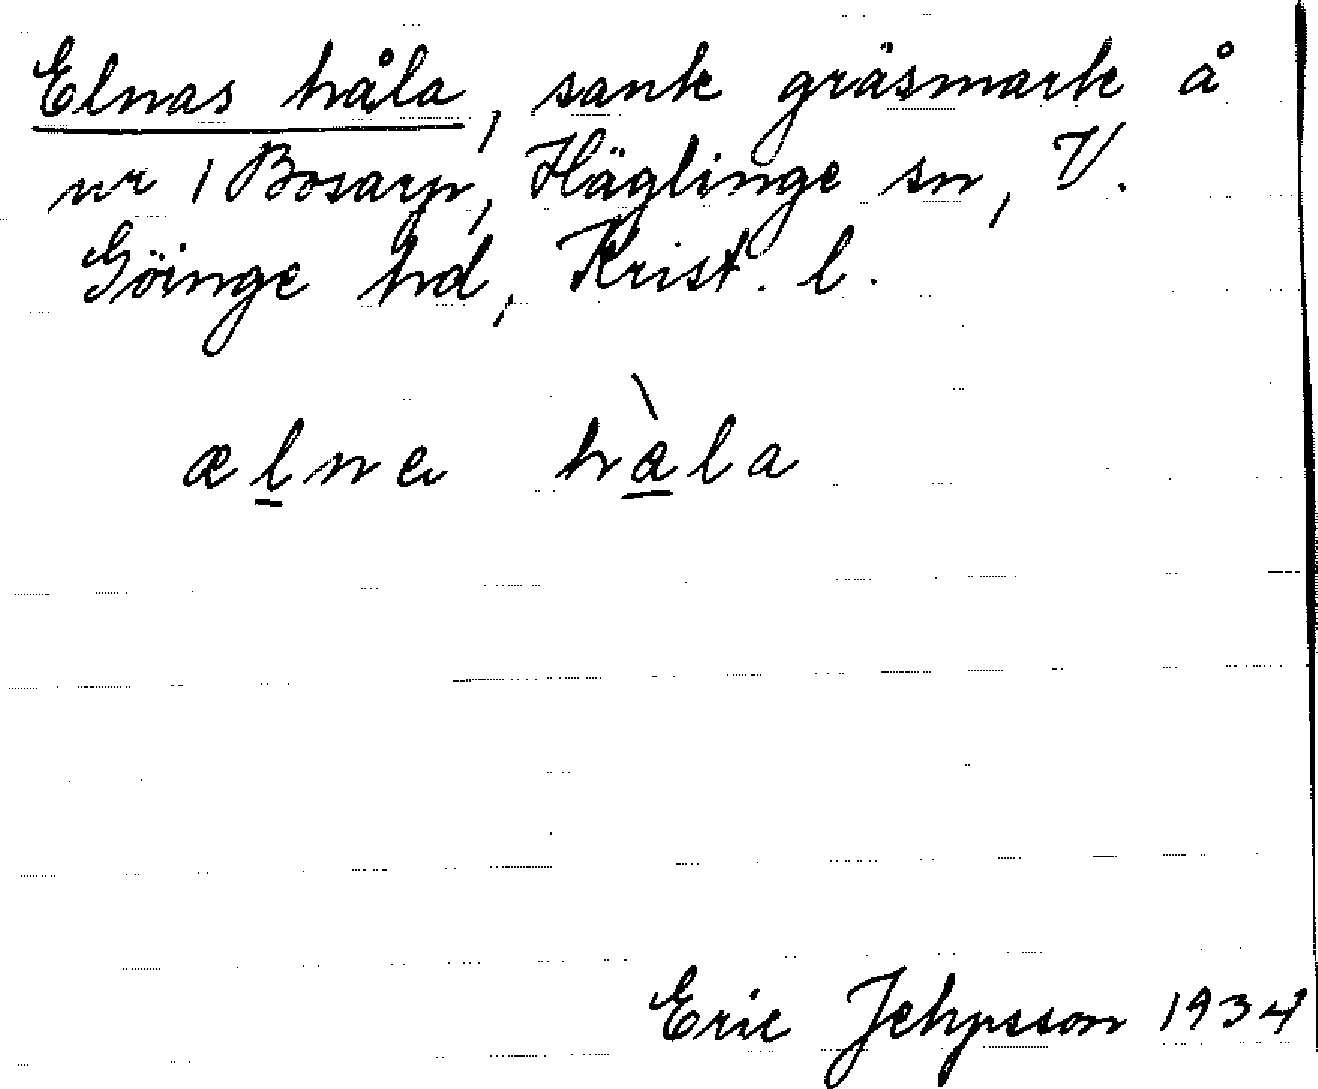 Elnas håla, sank gräsmark å
nr 1 Bosarp, Häglinge sn, V.
Göinge hd, Krist. l.
ælna hàla
Eric Jehpsson 1934